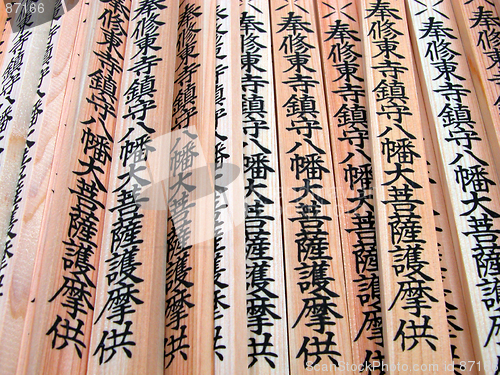 奉修東寺鎮守八幡大菩薩護摩供
奉修東寺鎮守八幡大菩薩護摩供
奉修東寺鎮守八幡大菩薩護摩供
奉修東寺鎮守八幡大菩薩護摩供
奉修東寺鎮守八幡大菩薩護摩供
奉修東寺鎮守八幡大菩薩護摩供
奉修東寺鎮守八幡大菩薩護摩供
奉修東寺鎮守八幡大菩薩護摩供
87166